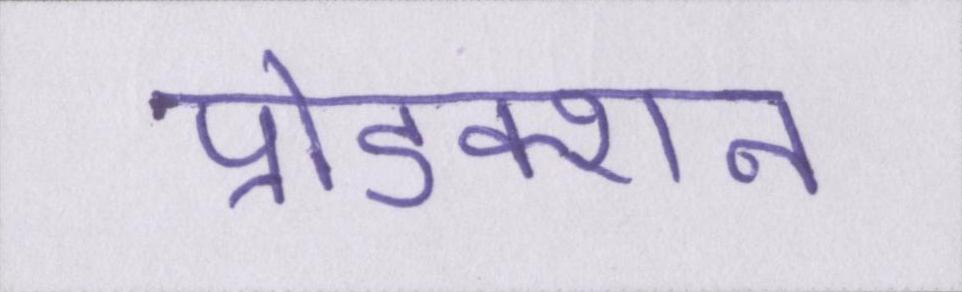 प्रोडक्शन